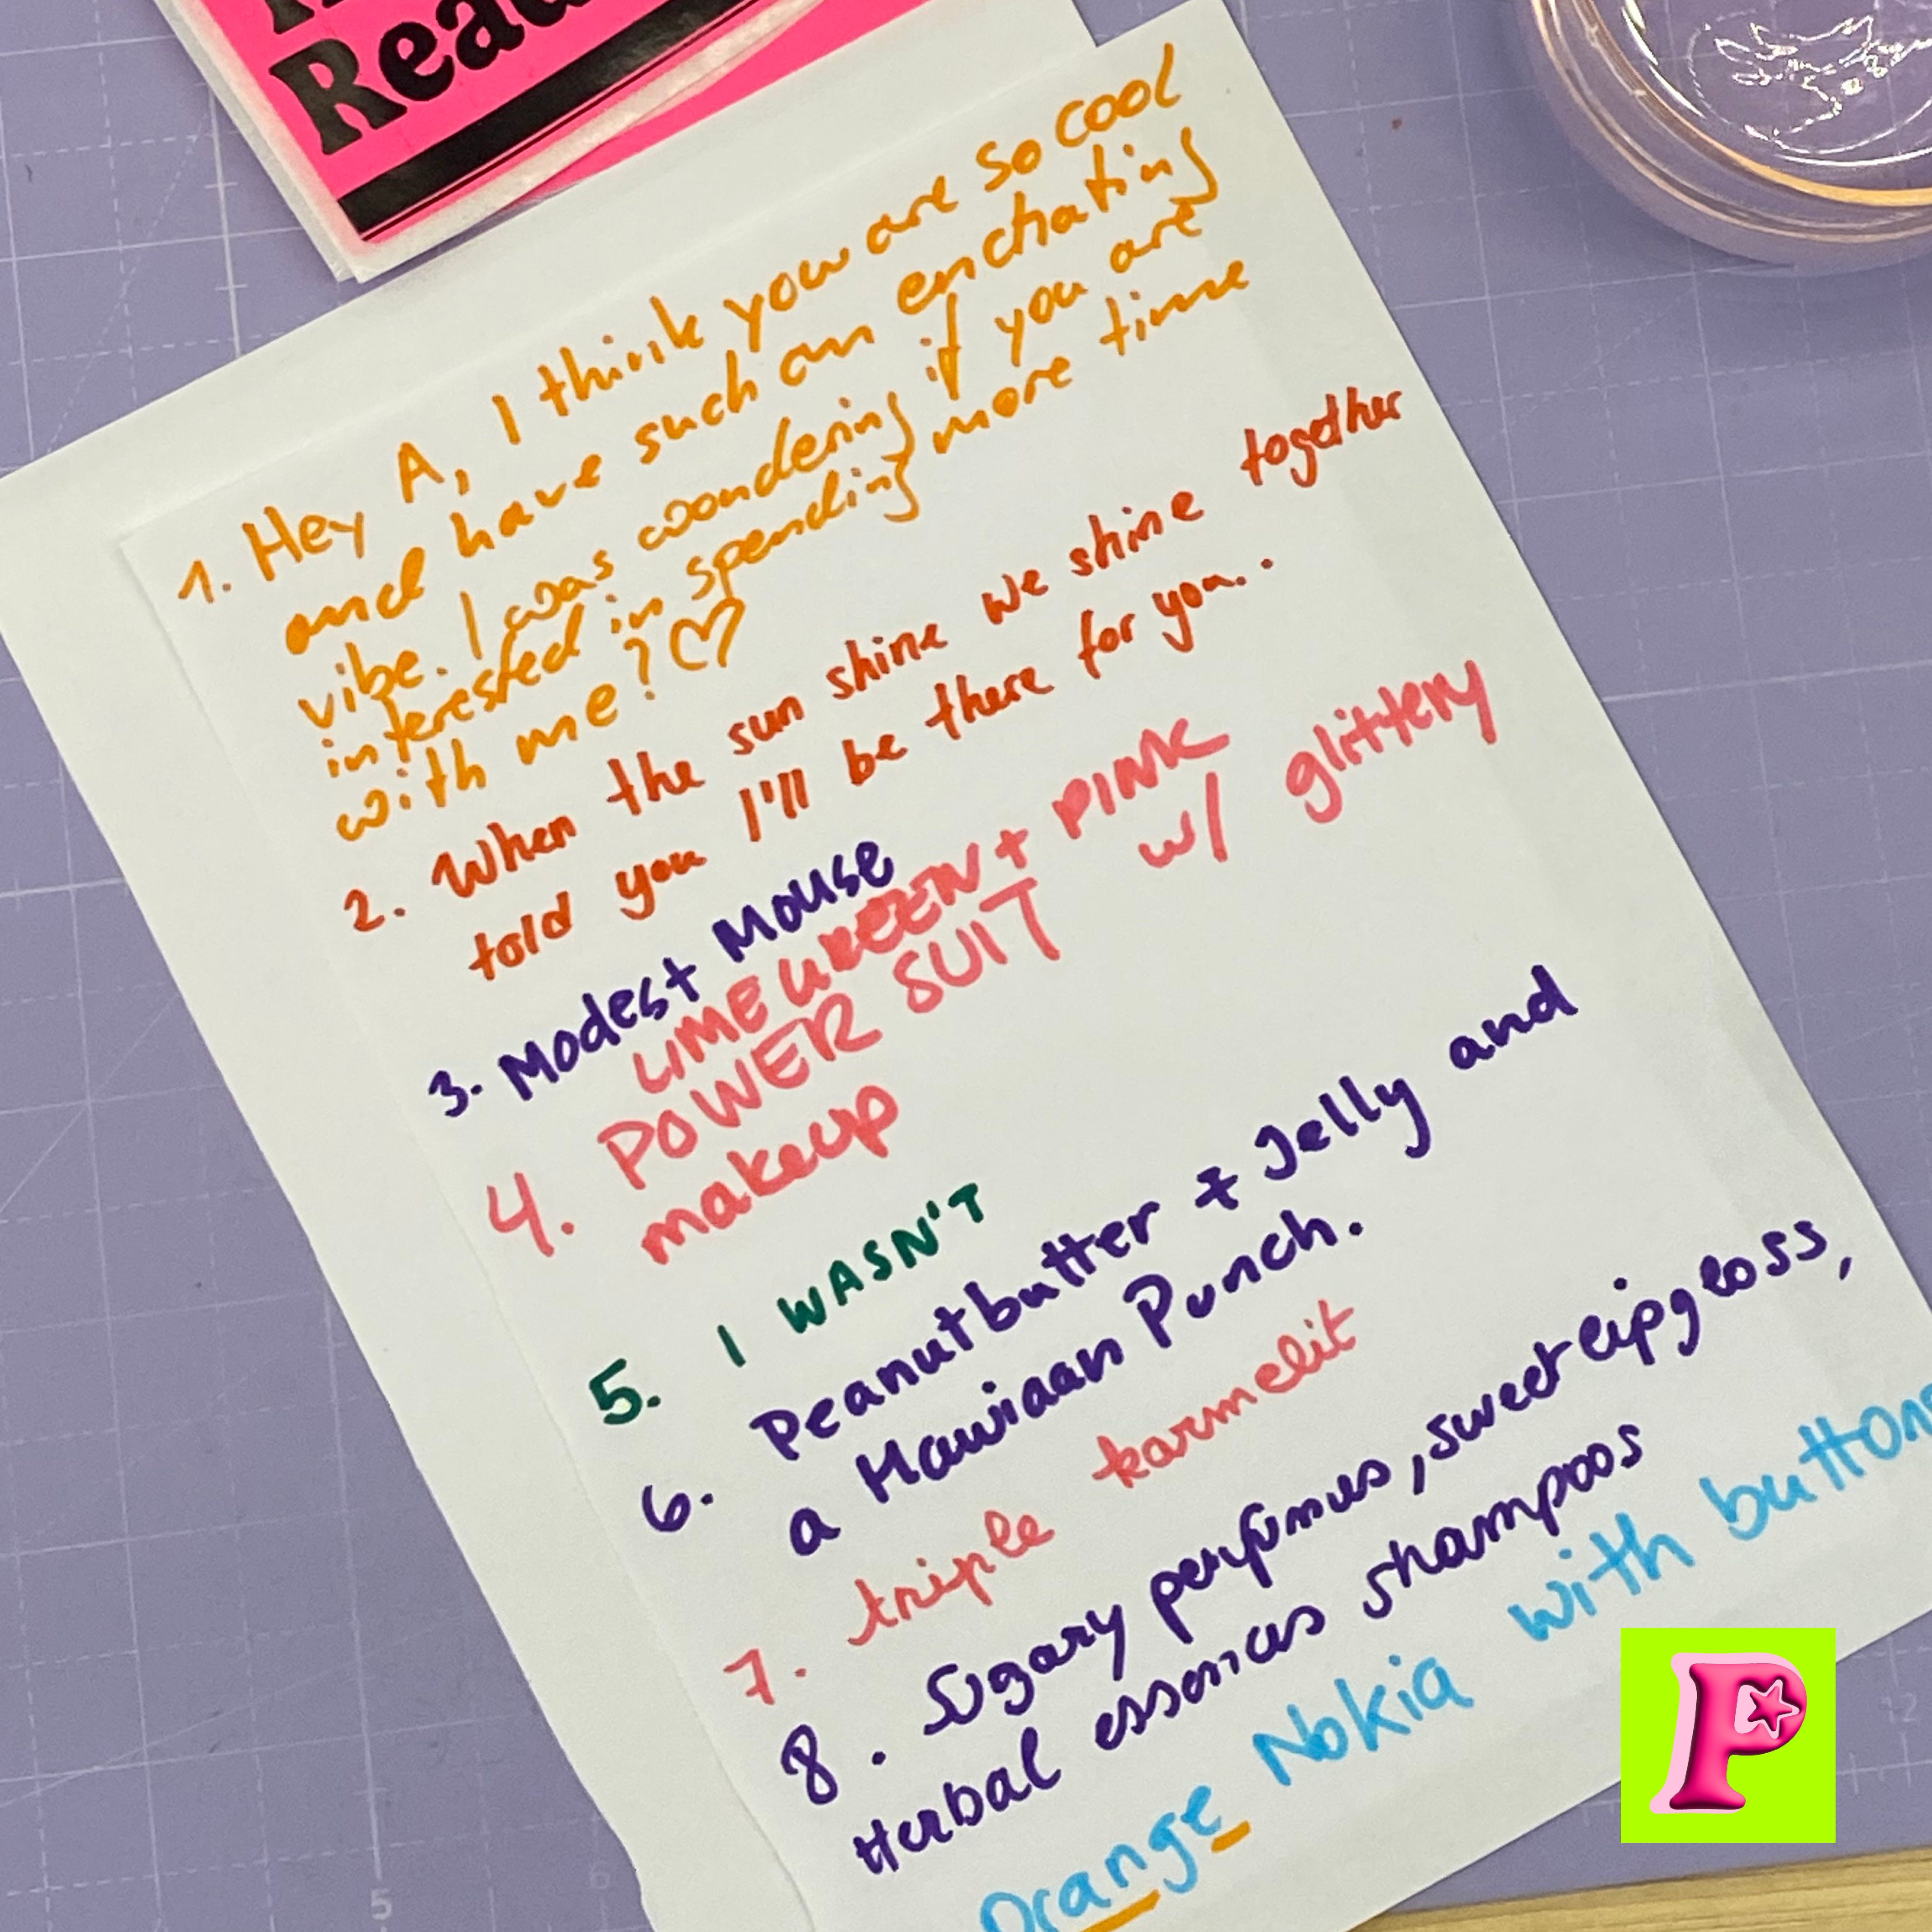 Read
1. Hey A, I think you are so cool
and have such an enchating
vibe. I was wondering if you are
interested in spending more time
with me? ♡
2. When the sun shine we shine together
told you I'll be there for you..
3. Modest Mouse
LIME GREEN + PINK
4. POWER SUIT w/ glittery
makeup
5. I WASN'T
6. Peanutbutter + Jelly and
a Hawiaan Punch.
7. triple karmelit
8. Sugary perfumes, sweet lipgloss,
Herbal essences shampoos
Orange Nokia with buttons
P
5
12